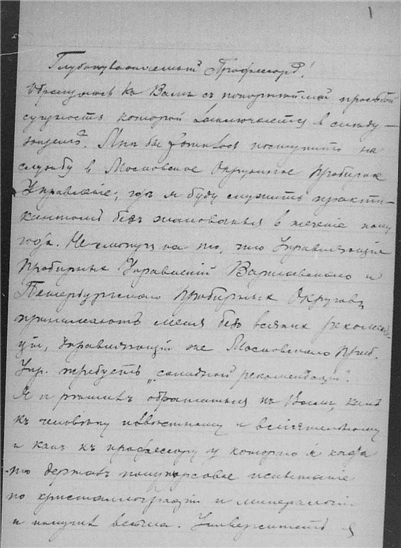 1
Глубокоуважаемый Профессоръ!
Обращаюсь къ Вамъ съ покорнѣйшей просьбой
сущность которой заключается въ слѣду-
ющемъ. Мнѣ бы хотѣлось поступить на
службу въ Московское Окружное Пробирн.
Управленіе, гдѣ я буду служить практи-
кантомъ безъ жалованья въ теченіе полу
года. Несмотря на то, что Управляющіе
Пробирныхъ Управленій Варшавскаго и
Петербургскаго Пробирныхъ Округовъ
принимаютъ меня безъ всякихъ рекоменда-
цій, Управляющій же Московскаго Проб.
Упр. требуетъ „солидной рекомендаціи".
Я и рѣшилъ обратиться къ Вамъ, какъ
къ человѣку извѣстному и вліятельному
и какъ къ профессору у котораго я когда
то держалъ полукурсовое испытаніе
по кристаллографіи и минералогіи
и получилъ весьма. Университетъ я